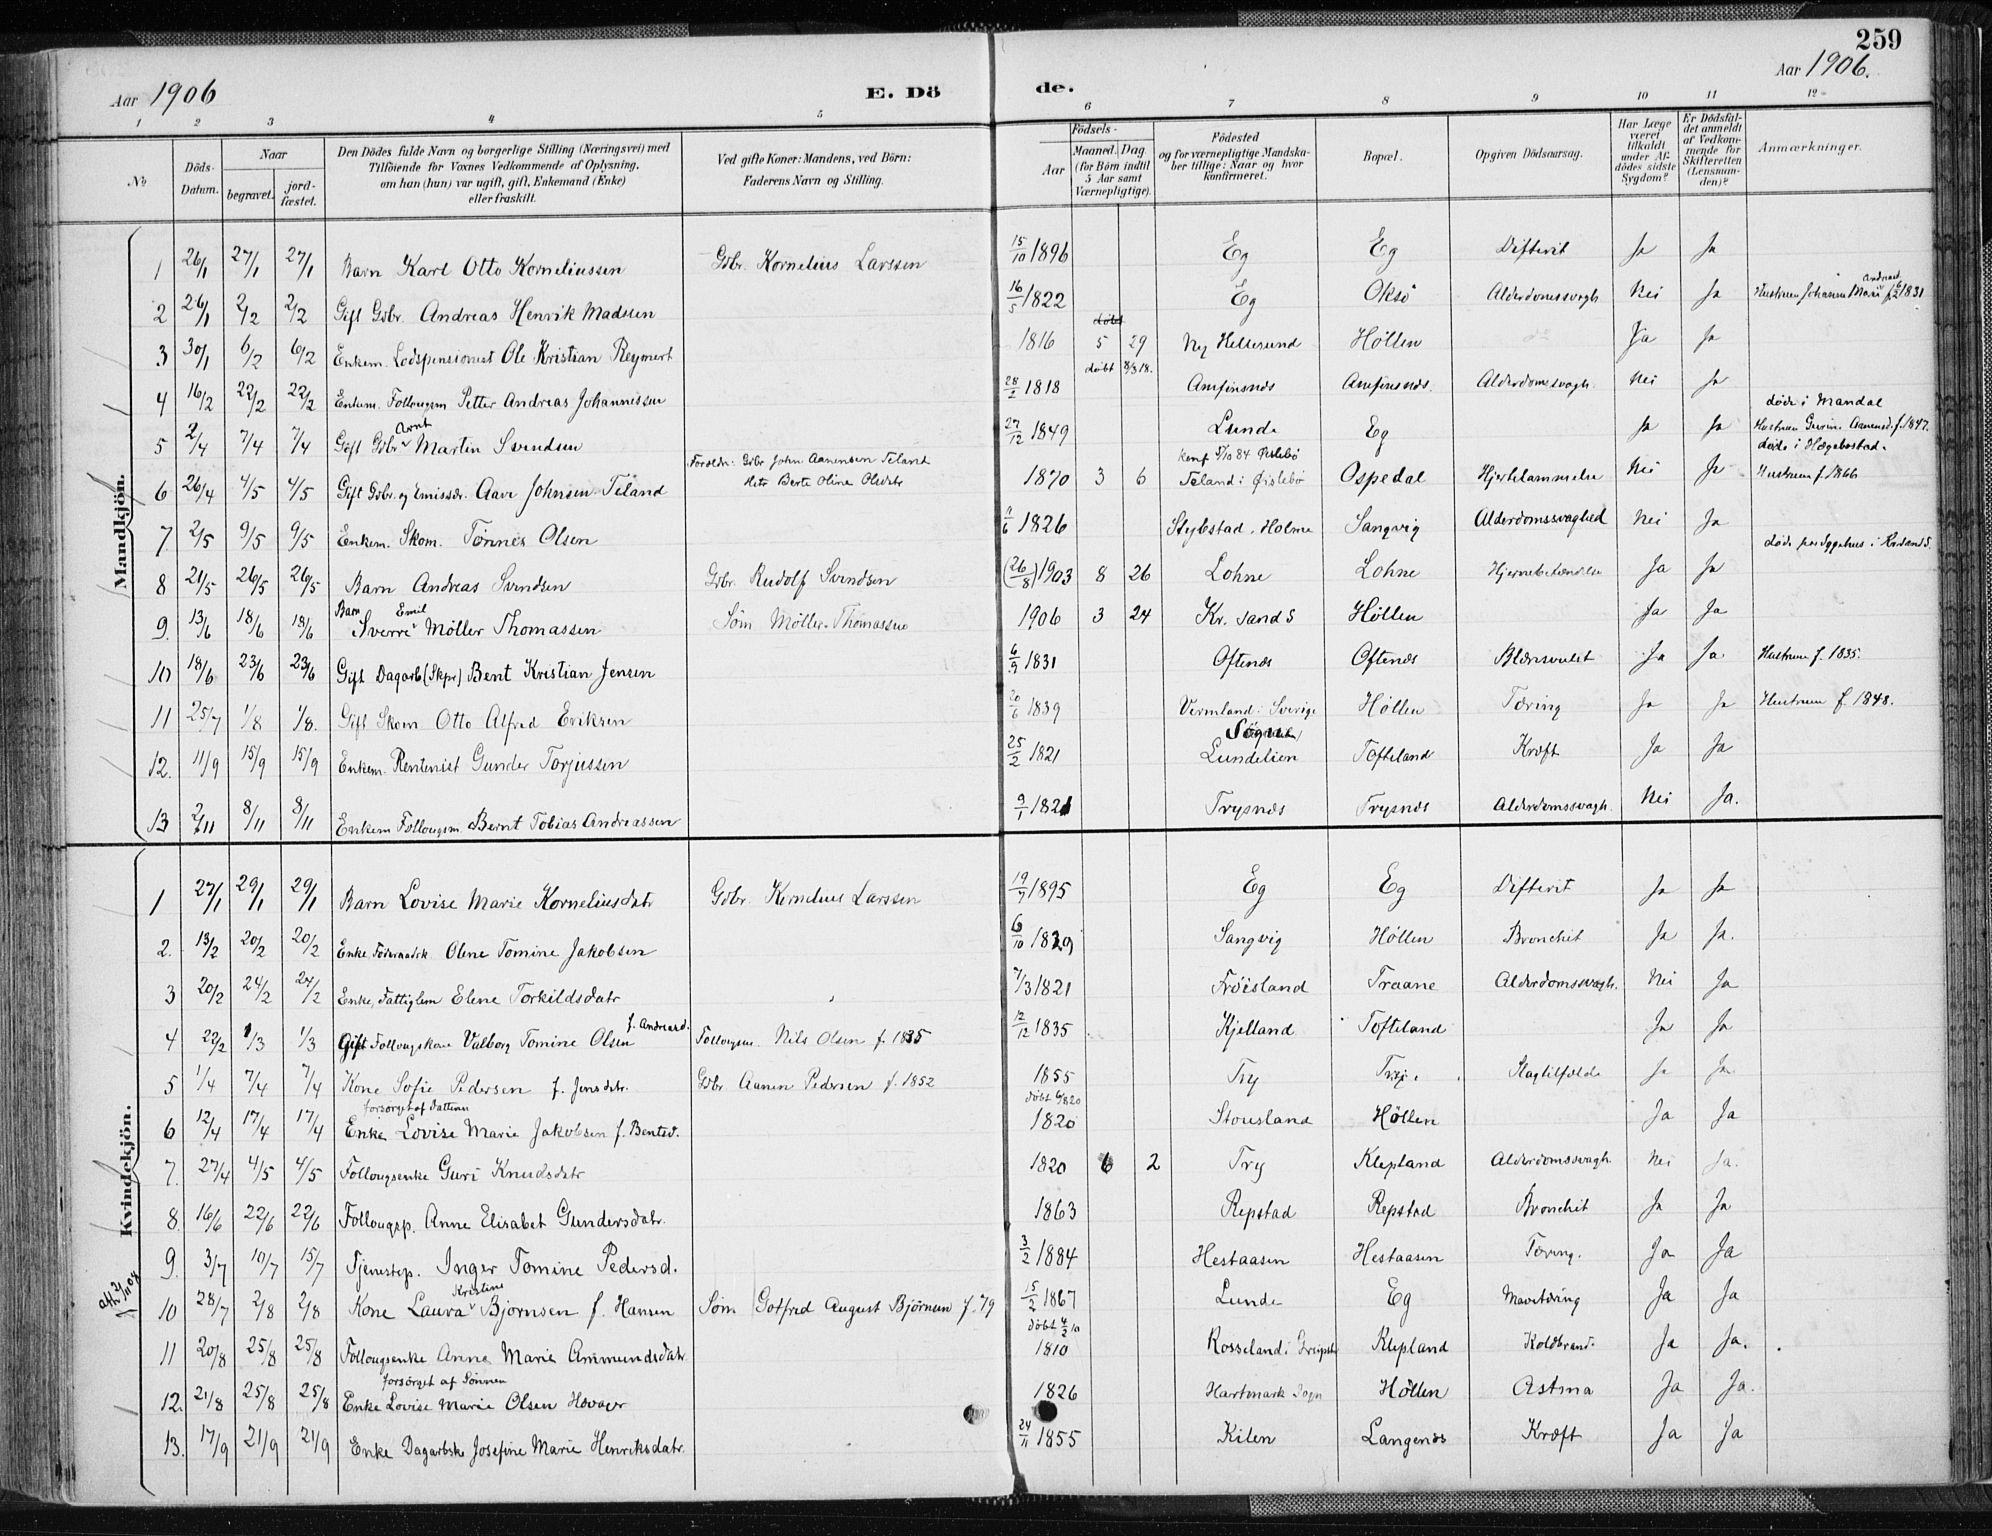 259
Aar 1906 E. Dö de. Aar 1906.
1 2 3 4 5 6 7 8 9 10 11 12
No Döds-Datum. Naar begravet. jord-fæstet. Den Dödes fulde Navn og borgerlige Stilling (Næringsvei) med Tilföiende for Voxnes Vedkommende af Oplysning, om han (hun) var ugift, gift, Enkemand (Enke) eller fraskilt. Ved gifte Koner: Mandens, ved Börn: Faderens Navn og Stilling. Födsels- Aar Maaned. Dag (for Börn indtil 5 Aar samt Værnepligtige). Födested og for værnepligtige Mandskaber tillige: Naar og hvor konfirmeret. Bopæl. Opgiven Dödsaarsag. Har Læge været tilkaldt under Afdödes sidste Sygdom? Er Dödsfaldet anmeldt af Vedkommende for Skifteretten (Lensmanden)? Anmærkninger.
Mandkjön.
1 26/1 27/1 27/1 Barn Karl Otto Korneliussen Gbr. Kornelius Larssen 15/10 1896 Eg Eg Difterit Ja Ja
2 26/1 2/2 2/2 Gift Gbr. Andreas Henrik Madssen 16/5 1822 Eg Oksö Alderdomssvagh Nei Ja Hustruen Johanne Marie Andreasd. f. 1831
3 30/1 6/2 6/2 Enkem. Lodspensionist Ole Kristian Reymert 1816 döbt 5 29 Ny Hellesund Höllen do Ja Ja
4 16/2 22/2 22/2 Enkem. Follougsm Petter Andreas Johannessen 28/2 1818 döbt 8/3 18. Amfinsnæs Amfinsnæs. Alderdomssvagh. Nei Ja
5 2/4 7/4 7/4 Gift Gbr Arnt Martin Svendsen 27/12 1849 Lunde Eg Ja Ja döde i Mandal Hustruen Gurine Aanensd. f. 1847.
6 26/4 4/5 4/5 Gift Gbr. og Emissær. Aave Johnsen Teland Foreldr: Gbr John Aanensen Teland Hstr Berte Oline Olsdatr 1870 3 6 konf 5/10 84 Öislebö Teland i Öislebö Ospedal Hjertelammelse Nei Ja döde i Hægebostad. Hustruen f. 1866
7. 2/5 9/5 9/5 Enkem. Skom. Tönnes Olsen 11/6 1826 Stybstad, Holme Sangvig Alderdomssvaghed Nei Ja
8 21/5 26/5 26/5 Barn Andreas Svendsen Gbr. Rudolf Svendsen (26/8) 1903 8 26 Lohne Lohne Hjernebetændelse Ja Ja döde paa Sygehus i Krsand S.
9. 13/6 18/6 18/6 Barn Sverre Emil Möller Thomassen Söm Möller Thomassen 1906 3 24 Kr. sand S Höllen Ja Ja
10 18/6 23/6 23/6 Gift Dagarb (Skpr) Bent Kristian Jensen 6/9 1831 Oftenæs Oftenæs Blæresvulst Ja Ja Hustruen f. 1835.
11 25/7 1/8 1/8. Gift Skom Otto Alfred Eriksen 20/6 1839 Vermland i Sverige Höllen Tæring Ja Ja Hustruen f. 1848.
12. 11/9 15/9 15/9 Enkem. Rentenist Gunder Torjussen 25/2 1821 Sögne Lundelien Tofteland Kræft Ja Ja
13 2/11 8/11 8/11 Enkem Follougsm. Bernt Tobias Andreassen 9/1 1821 Trysnæs Trysnæs Alderdomssvagh. Nei Ja.
Kvindekjön.
1 27/1 29/1 29/1 Barn Lovise Marie Korneliusdatr Gbr. Kornelius Larssen 19/7 1895 Eg Eg Difterit Ja Ja
2. 13/2 20/2 20/2 Enke Föderaadsk Olene Tomine Jakobsen 6/10 1829 Sangvig Höllen Bronchit Ja Ja.
3 20/2 24/2 24/2 Enke, Fattiglem Elene Torkildsdatr 7/3 1821 Fröisland Traane Alderdomssvagh. Nei Ja
4 22/2 1/3 1/3 Gift Follougskone Valborg Tomine Olsen f. Andreasd. Follougsm. Nils Olsen f. 1835 12/12 1835 Kjelland Tofteland Ja Ja
5 1/4 7/4 7/4 Kone Sofie Pedersen f. Jensdatr. Gbr Aanen Pedersen f. 1852 1855 Try Try. Slagtilfælde Ja Ja
6 12/4 17/4 17/4 forsörget af Datteren Enke Lovise Marie Jakobsen f. Bentsd. döbt 6/8 20 1820 Stousland Höllen Ja Ja
7. 27/4 4/5 4/5 Follougsenke Guri Knudsdatr 1820 6 2 Try Klepland Alderdomssvagh Nei Ja.
8. 16/6 22/6 22/6 Follougsp. Anne Elisabet Gundersdatr. 1863 Repstad Repstad Bronchit Ja Ja
9. 3/7 10/7 15/7 Tjenestep. Inger Tomine Pedersd. 3/2 1884 Hestaasen Hestaasen Tæring. Ja Ja
10 28/7 2/8 2/8 Kone Laura Kristine Bjornsen f. Hansen Söm Gotfred August Björnsen f. 79 15/2 1867 Lunde Eg Mavetæring Ja Ja
11 20/8 25/8 25/8 Follougsenke Anne Marie Ammundsdatr. döbt 4/2 10 1810 Rosseland i Greipst Klepland Koldbrand. Ja Ja.
12. 21/8 25/8 25/8 forsörget af Sönnen Enke Lovise Marie Olsen Hövaer 1826 Hartmark Sogn Höllen Astma Ja Ja.
13. 17/9 21/9 21/9 Enke Dagarbske Josefine Marie Henriksdatr. 24/11 1855 Kilen Langenæs Kræft Ja Ja